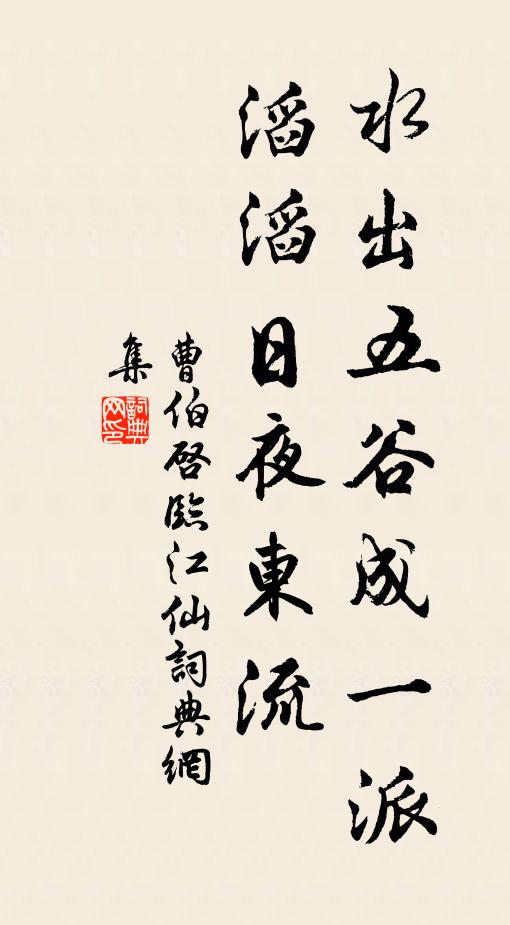 水出五谷成一派
滔滔日夜東流
曹伯啓臨江仙詞典網
集
詞典
网印